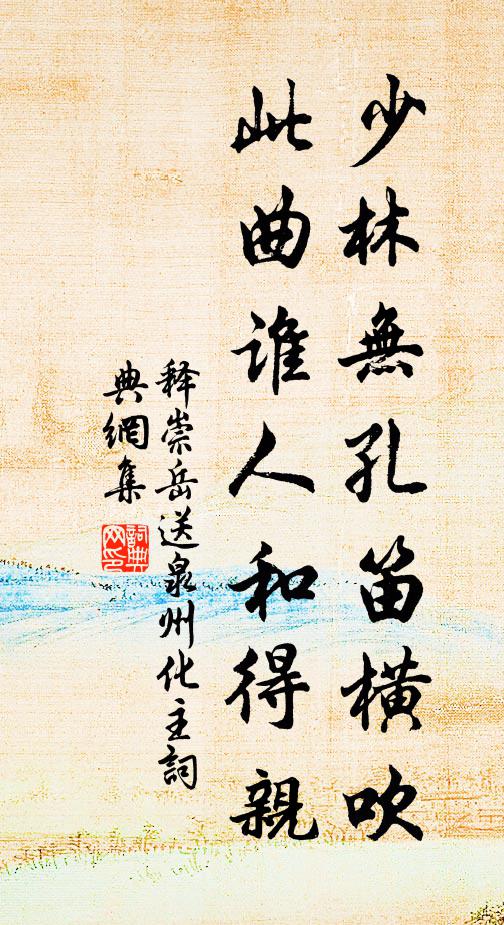 少林無孔笛橫吹
此曲誰人和得親
释崇岳送泉州化主詞
典網集
詞典
网印